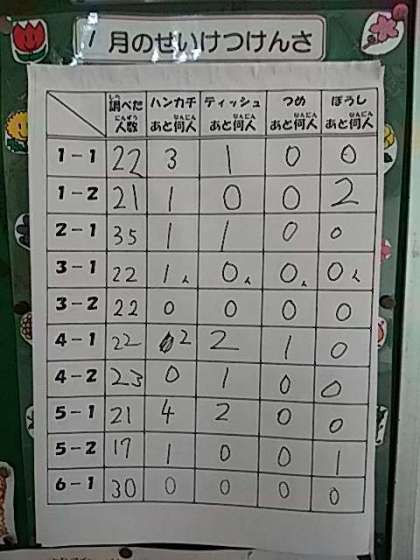 1 月のせいけつけんさ
調べた人数 ハンカチあと何人 ティッシュあと何人 つめあと何人 ぼうしあと何人
1-1 22 3 1 0 0
1-2 21 1 0 0 2
2-1 35 1 1 0 0
3-1 22 1人 0人 0人 0人
3-2 22 0 0 0 0
4-1 22 2 2 1 0
4-2 23 0 1 0 0
5-1 21 4 2 0 0
5-2 17 1 0 0 1
6-1 30 0 0 0 0